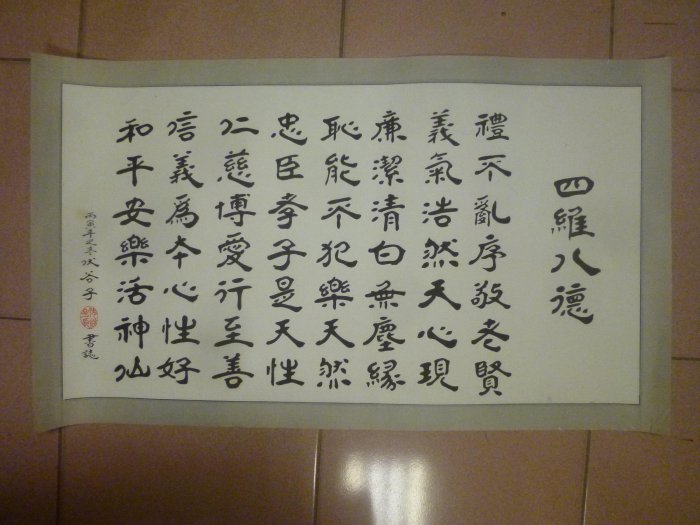 四維八德
禮不亂序敬老賢
義氣浩然天心現
廉潔清白無塵緣
恥能不犯樂天然
忠臣孝子是天性
仁慈博愛行至善
信義為本心性好
和平安樂活神仙
丙寅年之冬 谷子 書誌